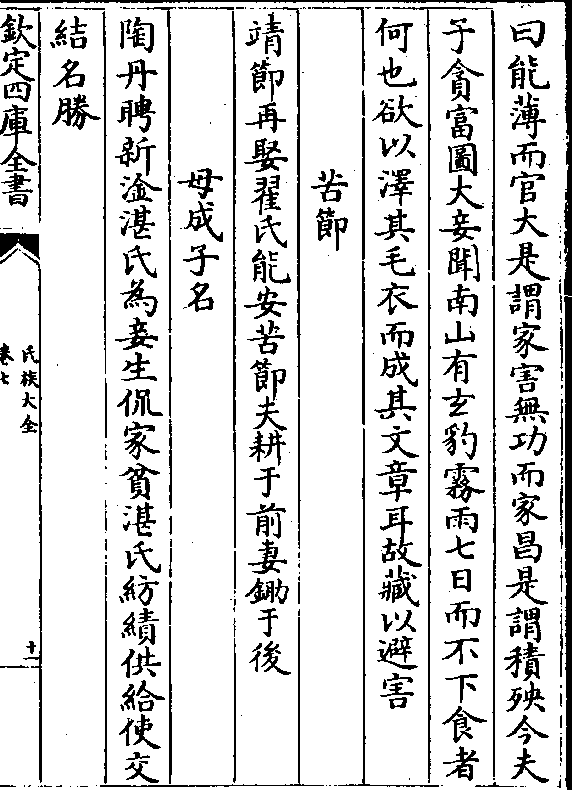 曰能薄而官大是謂家害無功而家昌是謂積殃今夫
子貪富圖大妾聞南山有玄豹霧雨七日而不下食者
何也欲以澤其毛衣而成其文章耳故藏以避害
苦節
靖節再娶翟氏能安苦節夫耕于前妻鋤于後
母成子名
陶丹聘新淦湛氏為妾生侃家貧湛氏紡績供給使交
結名勝
欽定四庫全書
氏族大全
卷七
十一